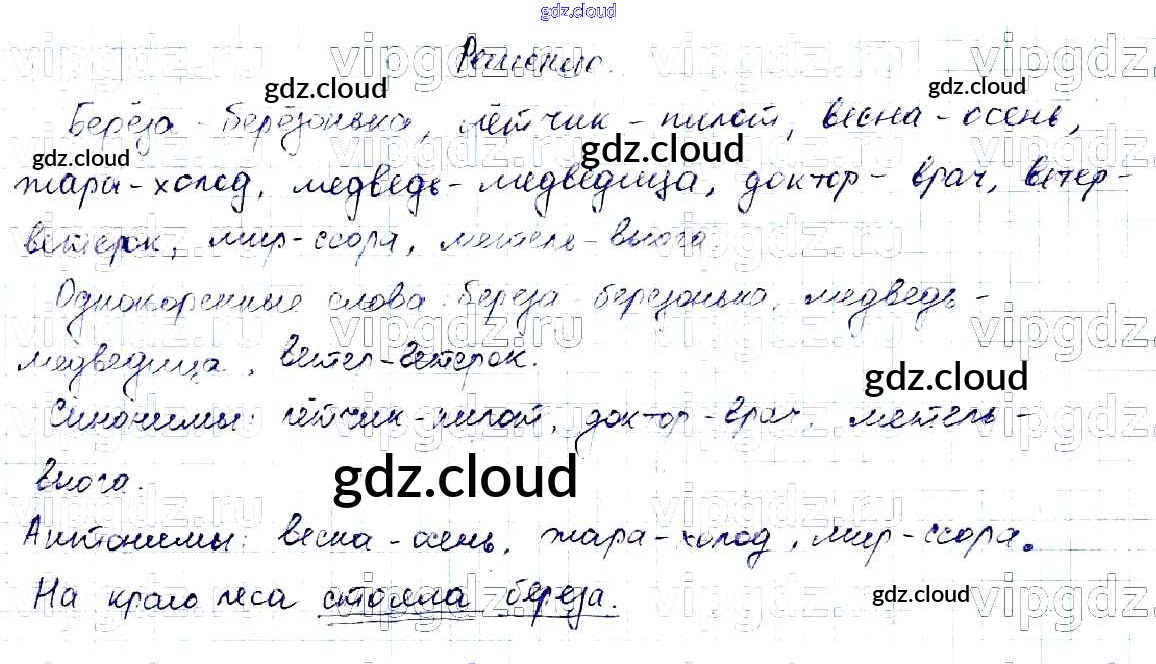 gdz.cloud
Решение.
gdz.cloud gdz.cloud
Берёза - берёзонька, лётчик - пилот, весна - осень,
gdz.cloud gdz.cloud
жара - холод, медведь - медведица, доктор - врач, ветер -
ветерок, мир - ссора, метель - вьюга.
Однокоренные слова: береза - березонька, медведь -
vipgdz.ru vipgdz.ru vipgdz
медведица, ветер - ветерок.
gdz.cloud
Синонимы: лётчик - пилот, доктор - врач, метель -
вьюга.
gdz.cloud
Антонимы: весна - осень, жара - холод, мир - ссора.
На краю леса стояла береза.
gdz.cloud